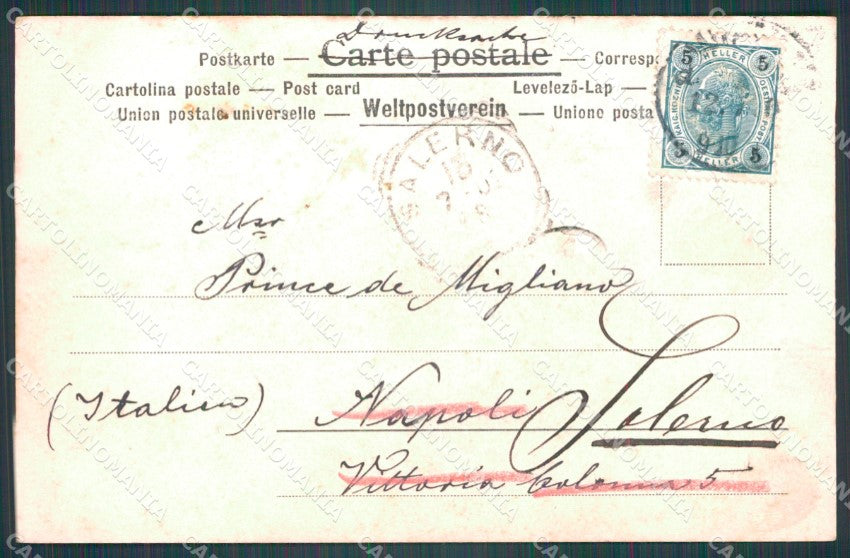 Drucksache
Postkarte — Carte postale — Corresp
Cartolina postale — Post card Levelező-Lap —
Union postale universelle — Weltpostverein — Unione posta
5 HELLER 5
5 HELLER 5
SALERNO
Msr
Prince de Migliano
(Italien) Napoli Salerno
Vittoria Colonna 5
CARTOLINOMANIA